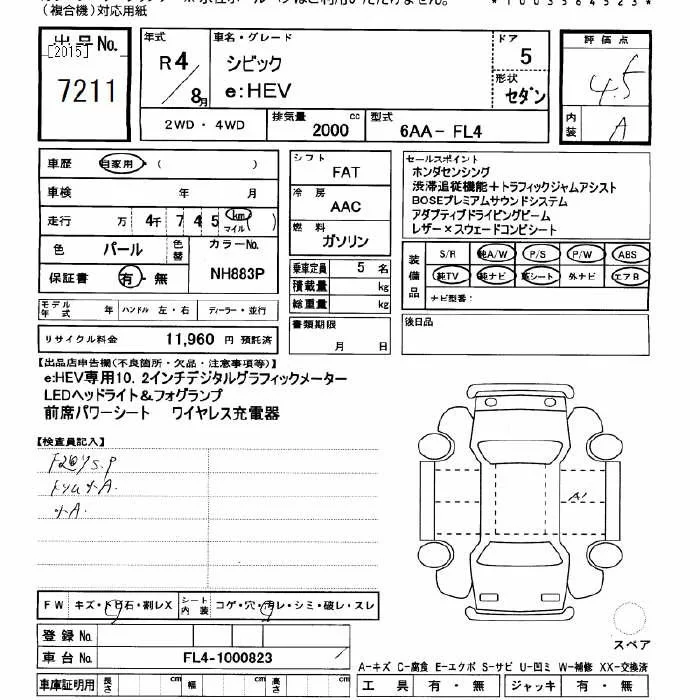 （複合機）対応用紙
出品No.
[2015]
7211
年式
R4/8月
車名・グレード
シビック
e:HEV
ドア
5
形状
セダン
評価点
4.5
内装
A
2WD・4WD
排気量
2000 cc
型式
6AA-FL4
車歴 自家用・（ ）
車検 年 月
走行 万 4千 7 4 5 km マイル
色 パール 色替 カラーNo. NH883P
保証書 有・無
モデル年式 年 ハンドル 左・右 ディーラー・並行
リサイクル料金 11,960 円 預託済
シフト
FAT
冷房
AAC
燃料
ガソリン
乗車定員 5 名
積載量 kg
総重量 kg
書類期限
月 日
セールスポイント
ホンダセンシング
渋滞追従機能＋トラフィックジャムアシスト
BOSEプレミアムサウンドシステム
アダプティブドライビングビーム
レザー×スウェードコンビシート
装備品
S/R 純A/W P/S P/W ABS
純TV 純ナビ 革シート 外ナビ エアB
ナビ型番：
後日品
【出品店申告欄(不良箇所・欠品・注意事項等)】
e:HEV専用10．2インチデジタルグラフィックメーター
LEDヘッドライト＆フォグランプ
前席パワーシート ワイヤレス充電器
【検査員記入】
A1
FW キズ・トビ石・割レX
シート内装 コゲ・穴・汚レ・シミ・破レ・スレ
登録No.
車台No. FL4-1000823
車庫証明用 長さ cm 幅 cm 高さ cm
スペア
A-キズ C-腐食 E-エクボ S-サビ U-凹ミ W-補修 XX-交換済
工具 有・無 ジャッキ 有・無